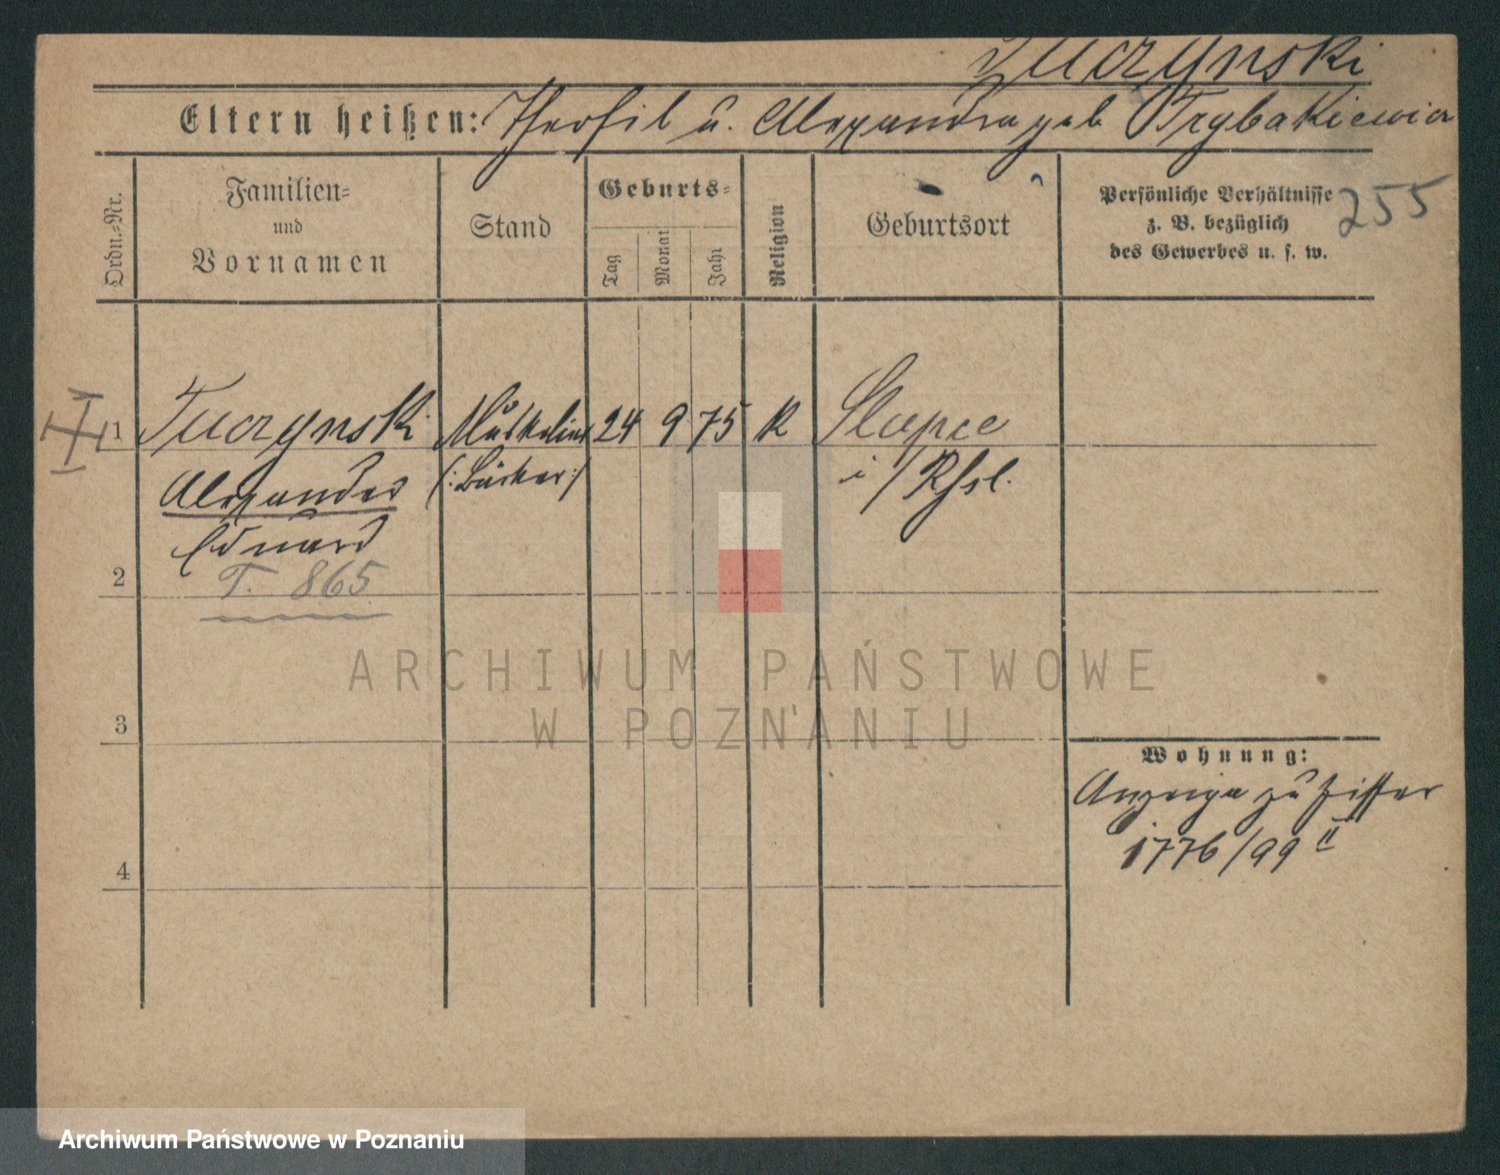 Tuczynski
Eltern heißen: Theofil u. Alexandra geb. Trybakiewicz
Ordn.-Nr.
Familien-
und
Vornamen
Stand
Geburts-
Tag
Monat
Jahr
Religion
Geburtsort
Persönliche Verhältnisse
z. B. bezüglich
des Gewerbes u. s. w.
255
1 Tuczynski Musketier 24 9 75 K Slupce
Alexander (: Bäcker :) i/Rßl.
Eduard
2 T. 865
3
4
Wohnung:
Anzeige zu Ziffer
1776/99 II
ARCHIWUM PAŃSTWOWE
W POZNANIU
Archiwum Państwowe w Poznaniu